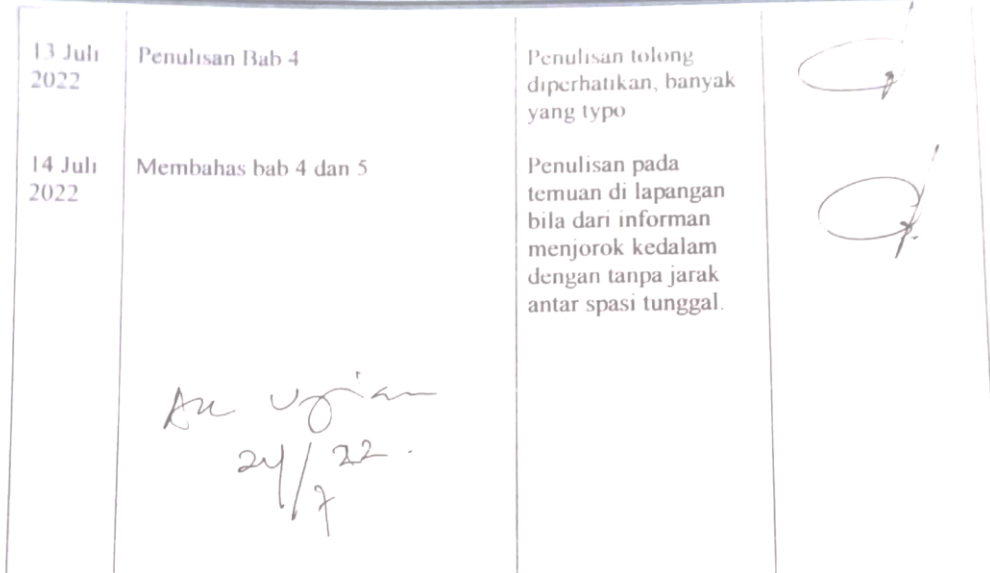 13 Juli
2022
Penulisan Bab 4
Penulisan tolong
diperhatikan, banyak
yang typo
14 Juli
2022
Membahas bab 4 dan 5
Penulisan pada
temuan di lapangan
bila dari informan
menjorok kedalam
dengan tanpa jarak
antar spasi tunggal.
Ujian
24/7 22.